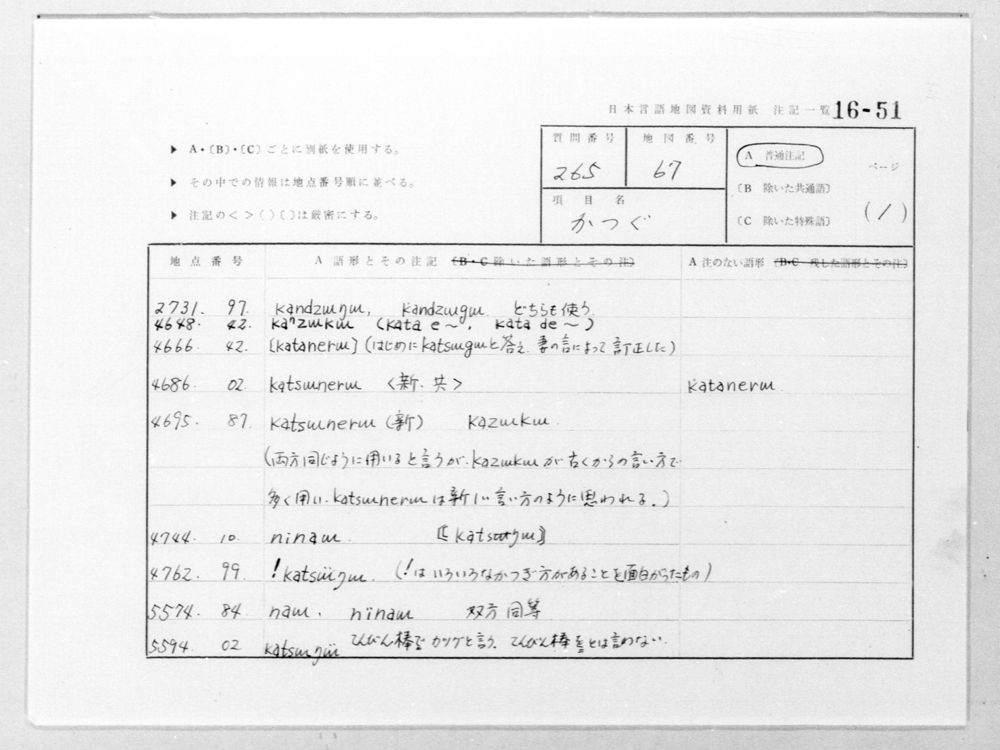 日本言語地図資料用紙 注記一覧 16-51
▶ A・〔B〕・〔C〕ごとに別紙を使用する。
▶ その中での情報は地点番号順に並べる。
▶ 注記の< >( )〔 〕は厳密にする。
質問番号 地図番号
265 67
項目名
かつぐ
A 普通注記
〔B 除いた共通語〕
〔C 除いた特殊語〕
ページ
(1)
地点番号 A 語形とその注記 (B・C 除いた語形とその注) A 注のない語形 (B・C 残した語形とその注)
2731. 97. kandzɯŋɯ, kandzɯgɯ どちらも使う
4648. 42. kaⁿzɯkɯ (kata e~, kata de~)
4666. 42. [katanerɯ] (はじめにkatsɯgɯと答え、妻の言によって訂正した)
4686. 02. katsɯnerɯ <新. 共> katanerɯ
4695. 87. katsɯnerɯ (新) kazɯkɯ
(両方同じように用いると言うが、kazɯkɯが古くからの言い方で
多く用い、katsɯnerɯは新しい言い方のように思われる。)
4744. 10. ninaɯ 〚katsɯŋɯ〛
4762. 99. !katsɯ̈ŋɯ (!はいろいろなかつぎ方があることを面白がったもの)
5574. 84. naɯ, ninaɯ 双方同等
5594. 02 katsɯŋɯ̈ てんびん棒でカツグと言う。てんびん棒をとは言わない。